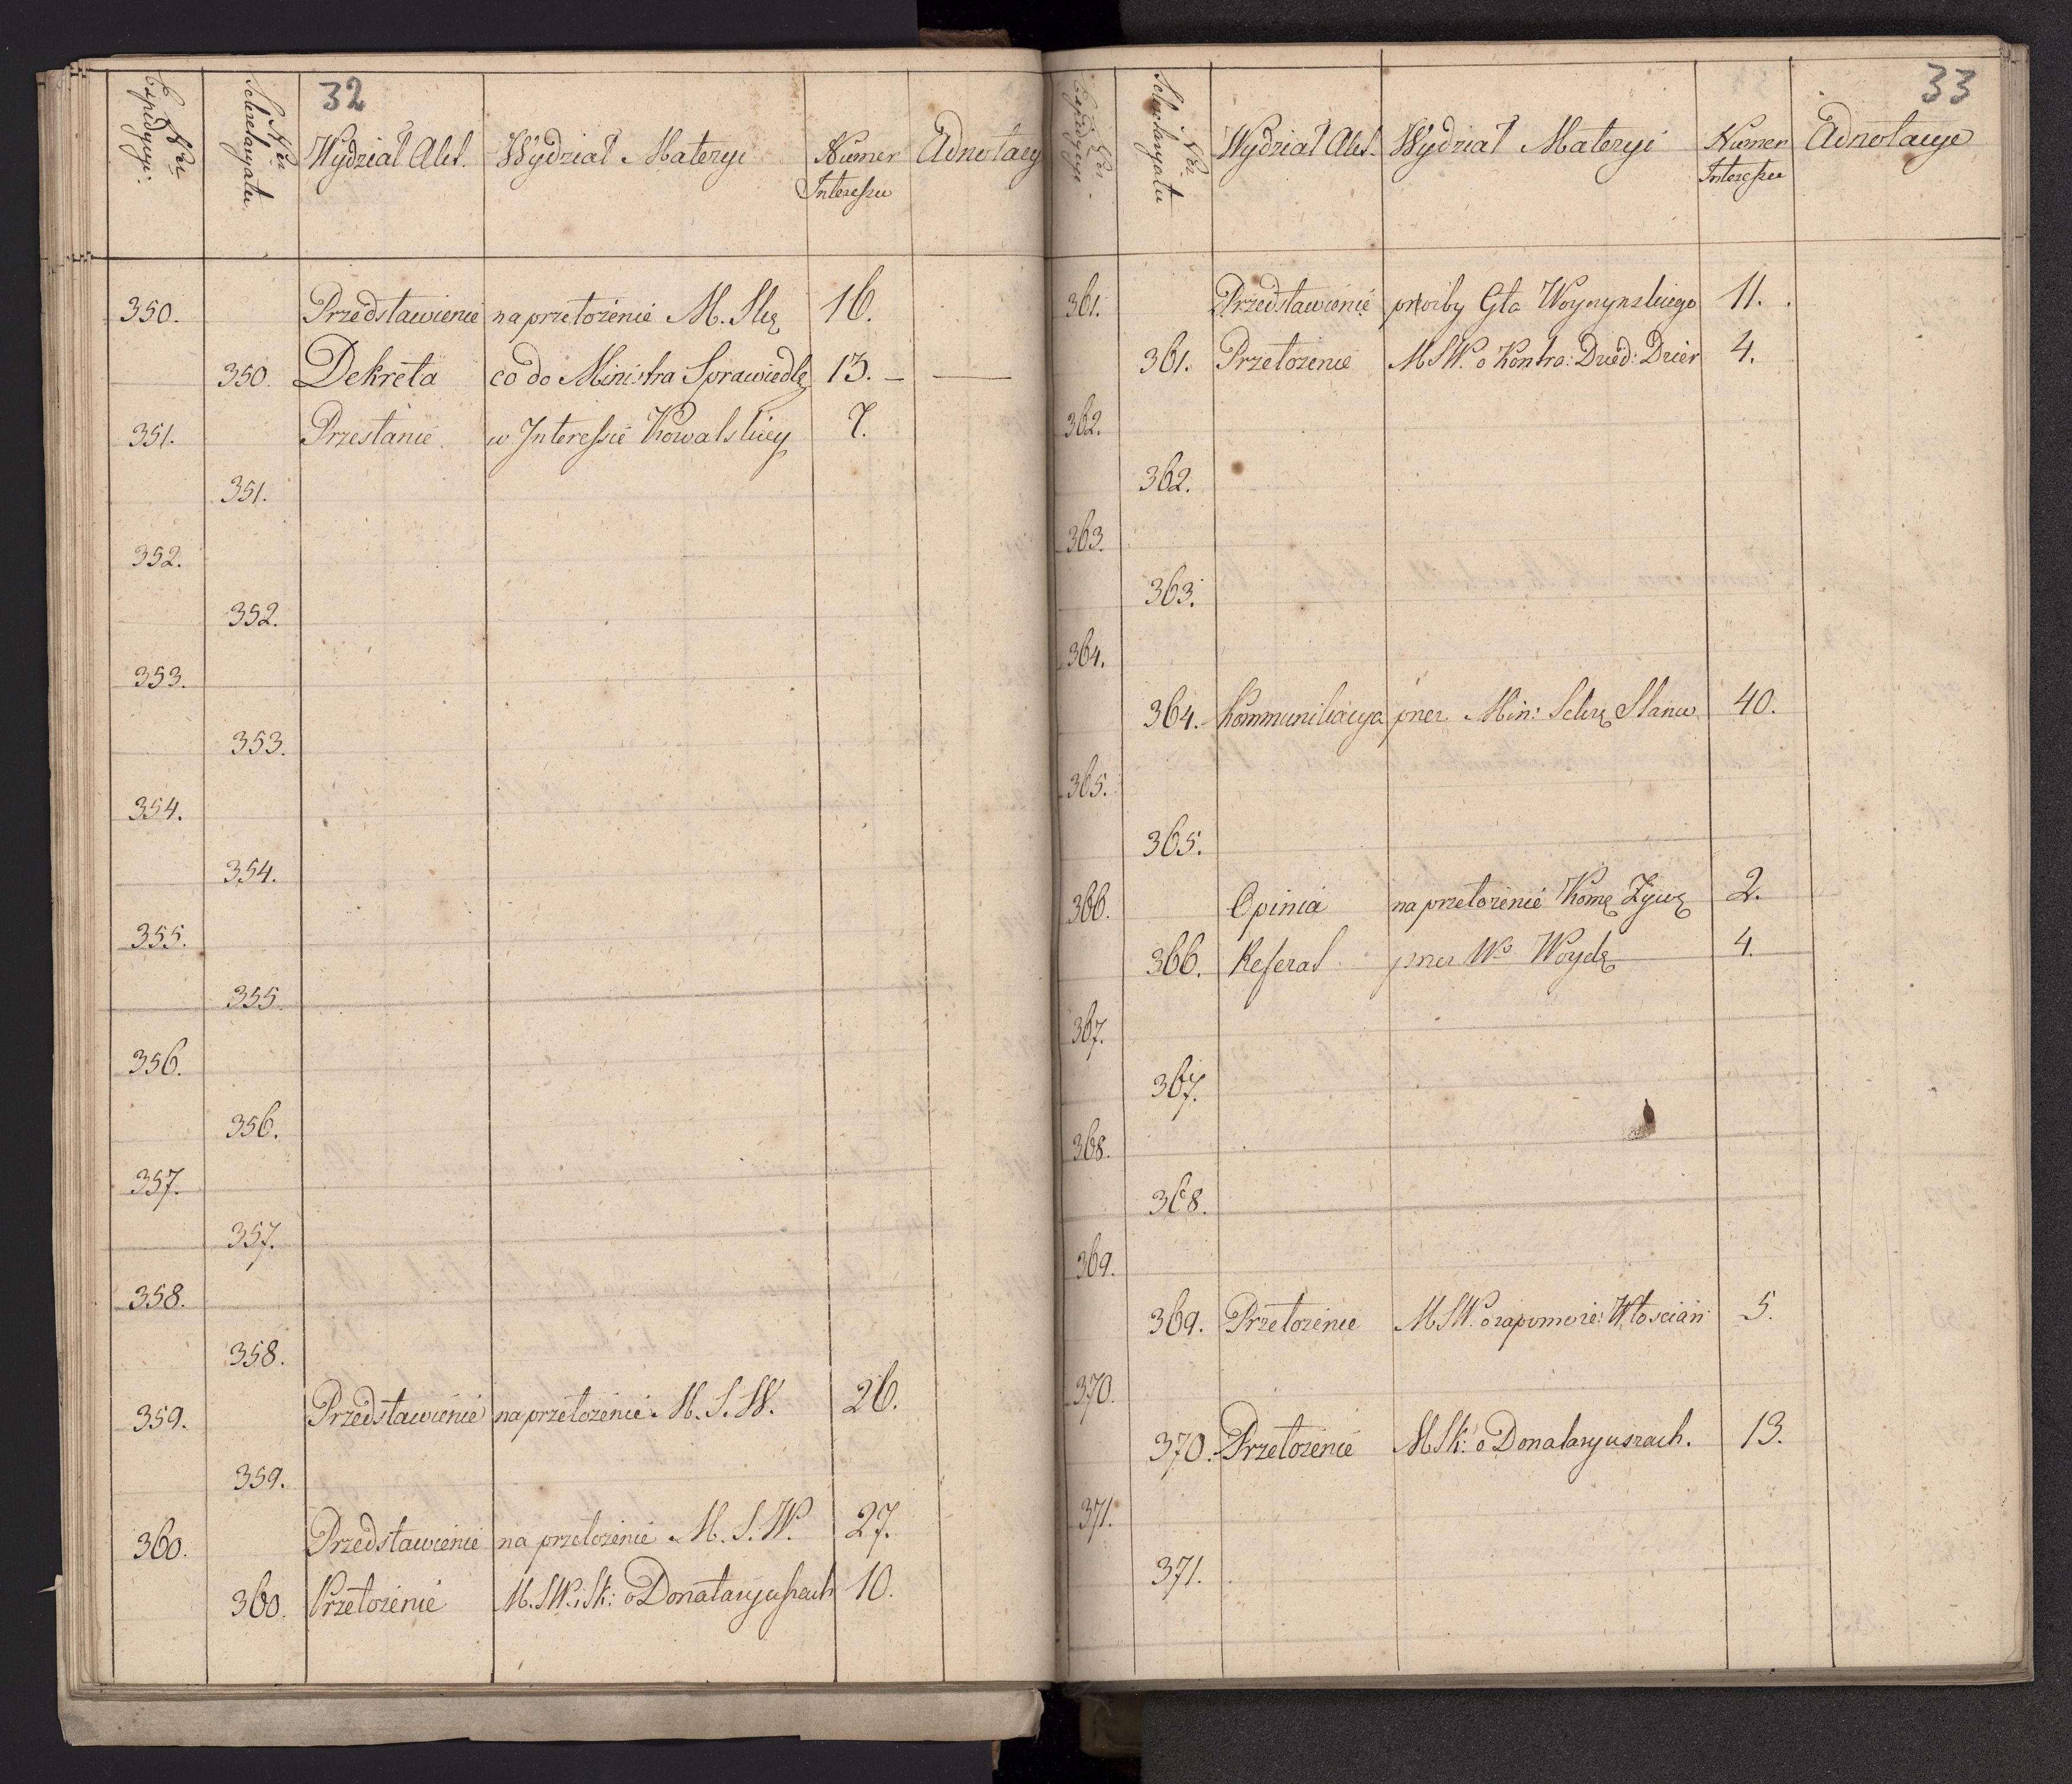 32
Nri Expedycyi:
Nri Sekretaryatu
Wydział Akt.
Wydział Materyi
Numer Interessu
Adnotacy
350. Przedstawienie na przełożenie M. Skę 16.
350. Dekreta co do Ministra Sprawiedlę 13. – —
351. Przesłanie w Interessie Kowalskiey 7.
351.
352.
352.
353.
353.
354.
354.
355.
355.
356.
356.
357.
357.
358.
358.
359. Przedstawienie na przełożenie M. S. W. 26.
359.
360. Przedstawienie na przełożenie M. S. W. 27.
360. Przełożenie M. SW. i Sk: o Donataryuszach 10.
33
Nri Expedycyi.
Nri Sekretaryatu
Wydział Akt.
Wydział Materyi
Numer Interessu
Adnotacye
361. Przedstawienie proźby Gła Woyczynskiego 11.
361. Przełożenie MSW. o Kontra: Dzied: Dzier 4.
362.
362.
363.
363.
364.
364. Kommunikacya przez Min: Sekrę Stanu 40.
365.
365.
366. Opinia na przełożenie Komę Żywę 2.
366. Referat przez Wo Woydę 4.
367.
367.
368.
368.
369.
369. Przełożenie MSW. o zapomoże: Włościan 5.
370.
370. Przełożenie MSk: o Donataryuszach. 13.
371.
371.